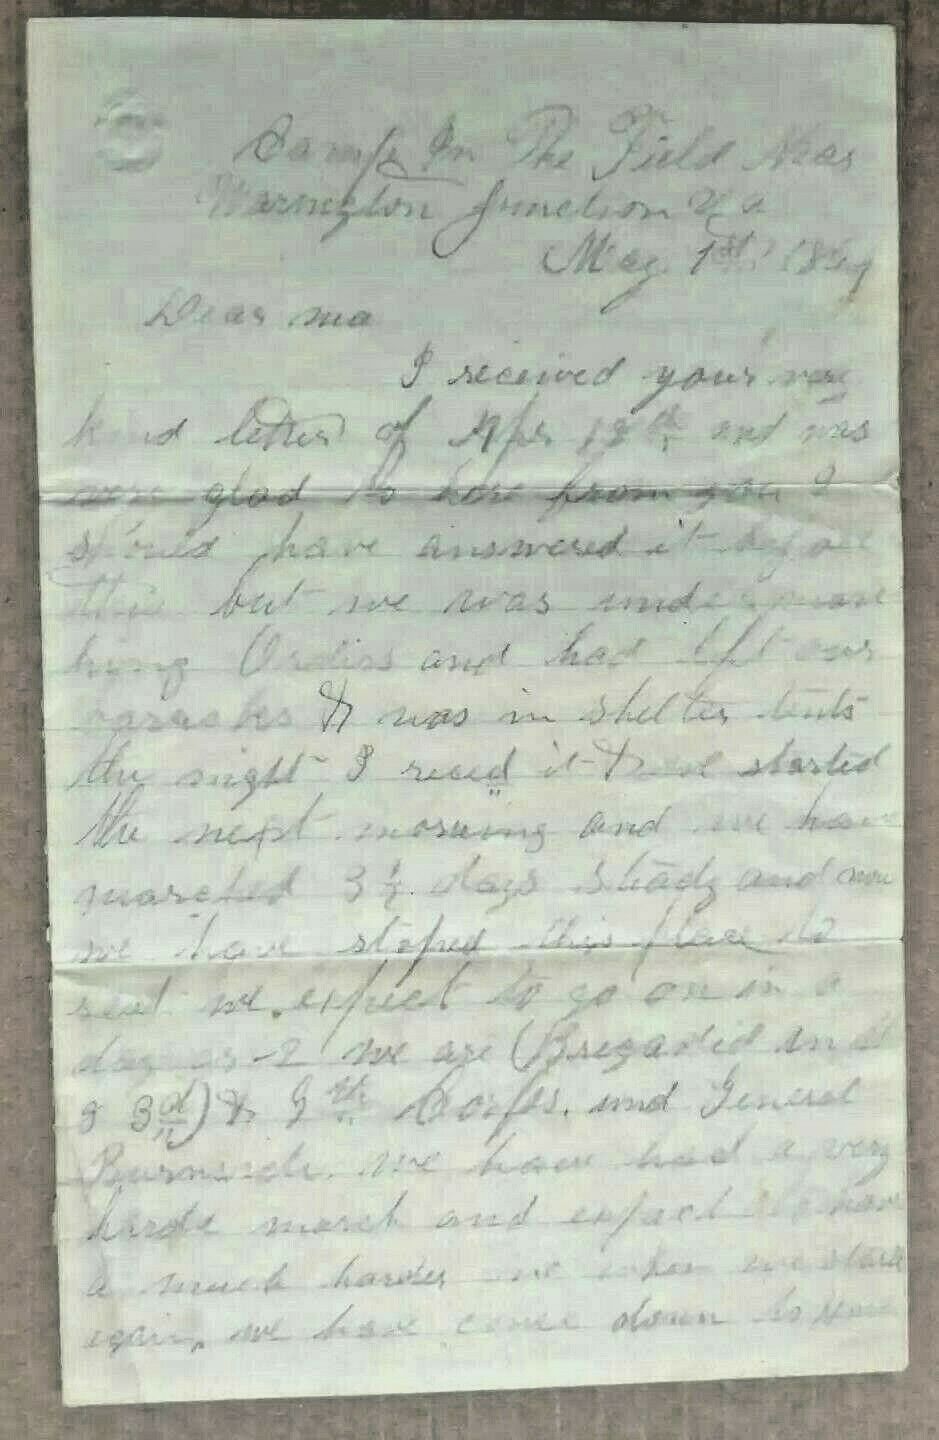 Camp In The Field Near
Warington Junction Va
May 1st 1864
Dear ma
I received your very
kind letter of Apr 18th and was
very glad to hare from you I
should have answered it before
this but we was under mare
hing Orders and had left our
baracks & was in shelter tents
the night I reced it & we started
the next morning and we have
marched 3 1/2 days steady and now
we have stoped this place to
rest we expect to go on in a
day or 2 we are (Bregaded in
3d) & 9th Corps. und General
Burnside. we have had a very
harde march and expect to have
a much harder one when we start
again, we have come down to